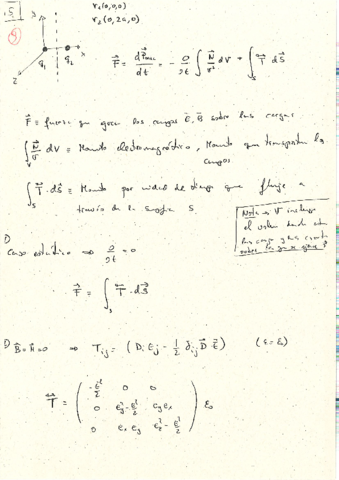 5
r₁(0,0,0)
r₂(0,2a,0)
y
x
z
q₁ q₂
F⃗ = dP⃗mec/dt = - ∂/∂t ∫ N⃗/v² dV + ∫_S T⃡ dS⃗
F⃗ ≡ fuerza que ejercen los campos E⃗, B⃗ sobre las cargas
∫_V N⃗/v² dV ≡ Momento electromagnético, Momento que transportan los campos
∫_S T⃡ · dS⃗ ≡ Momento por unidad de tiempo que fluye a
través de la superficie S.
Nota → V incluye
el volumen donde están
las cargas
sobre las que se ejerce F⃗
1)
Caso estático ⟹ ∂/∂t = 0
F⃗ = ∫_S T⃡ · dS⃗
2) B⃗ = H⃗ = 0 ⟹ T_ij = (D_i E_j - 1/2 δ_ij D⃗ E⃗) (ε = ε₀)
T⃡ = ( -E²/2 0 0
0 E_y² - E²/2 E_y E_x
0 E_x E_y E_z² - E²/2 ) ε₀